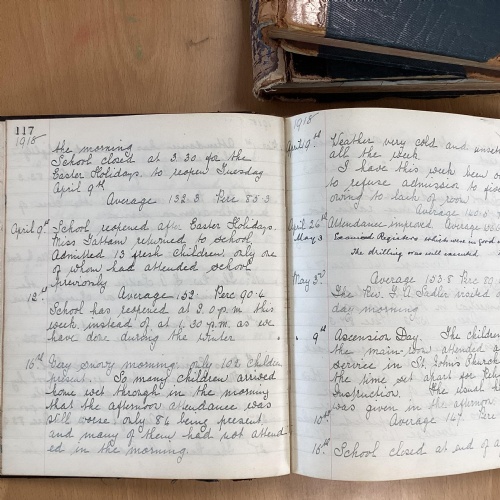 117
1918
the morning
School closed at 3.30 for the
Easter Holidays to reopen Tuesday
April 9th
Average 132.3 Perc 85.3
April 9th School reopened after Easter Holidays.
Miss Tattam returned to school
Admitted 13 fresh children, only one
of whom had attended school
previously
Average 132. Perc 90.4
12th School has reopened at 2.0 p.m. this
week, instead of at 1.30 p.m. as we
have done during the winter
16th Very snowy morning, only 102 children
present. So many children arrived
home wet through in the morning
that the afternoon attendance was
still worse, only 86 being present,
and many of them had not attend
ed in the morning.
1918
April 19th Weather very cold and
all the week.
I have this week been
to refuse admission to
owing to lack of room
Average
April 26th Attendance improved. Average
May 3 Examined Registers which were in good
The drilling was well executed
Average 153.8 Perc
May 3rd The Rev. Sadler visited
day morning
9th Ascension Day. The children
the main attended a
service in St. John's Church
the time set apart for
Instruction. The usual
was given in the afternoon
10th Average 147. Perc
School closed at end of